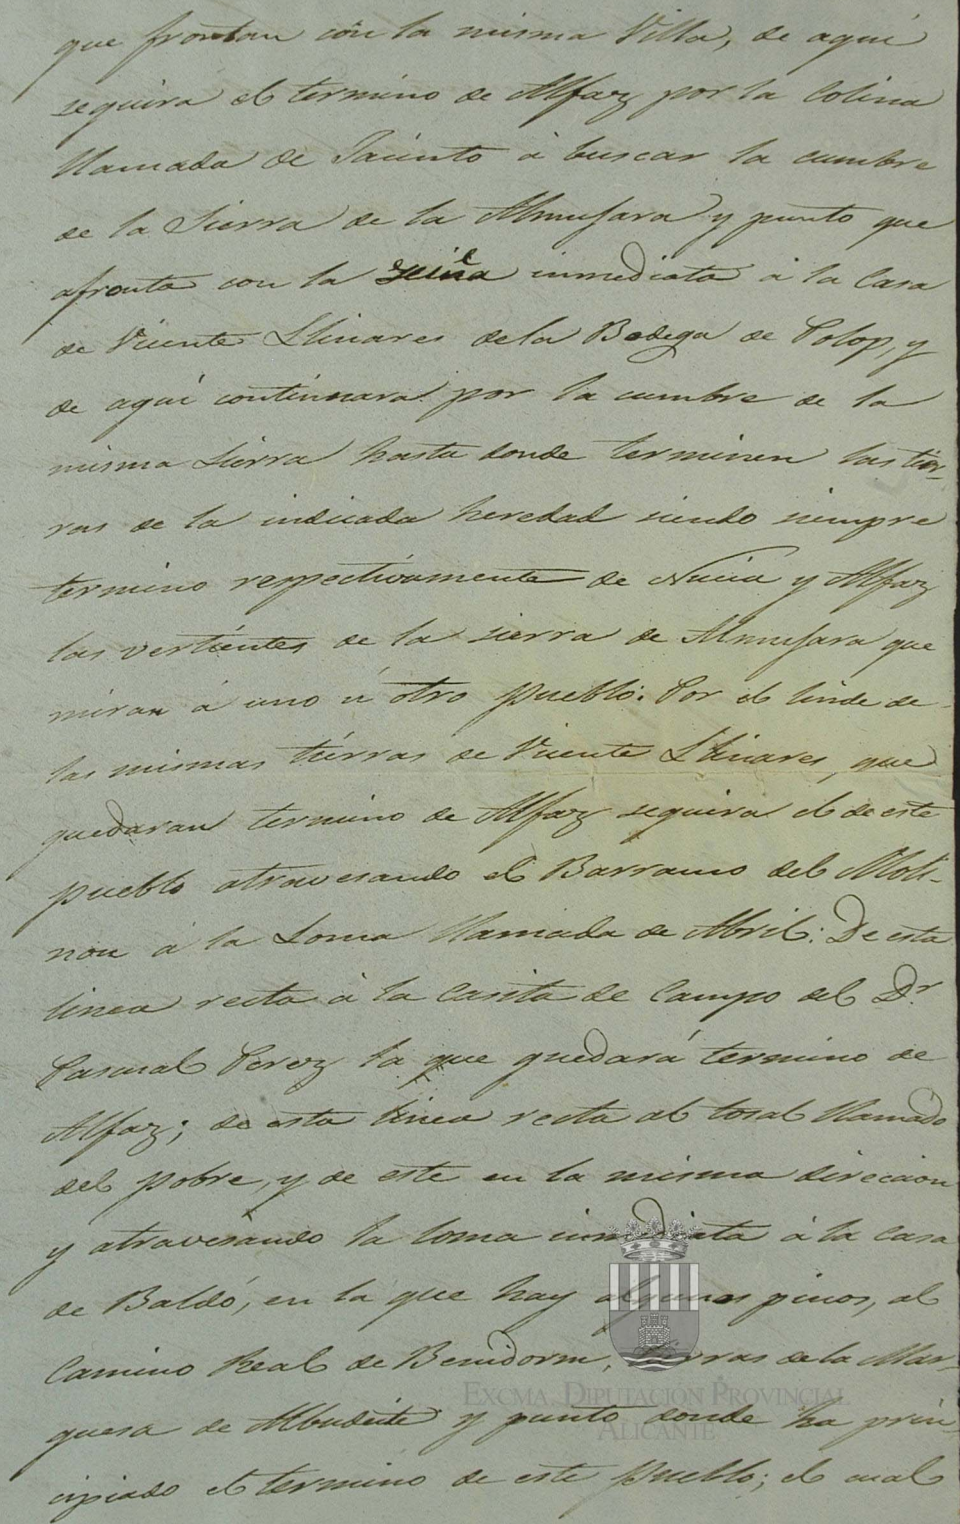 que frontan con la misma Villa, de aqui
seguira el termino de Alfaz por la Colina
llamada de Jacinto á buscar la cumbre
de la Sierra de la Almusara y punto que
afronta con la inmediata á la Casa
de Vicente Llinares de la Bodega de Polop, y
de aqui continuara por la cumbre de la
misma Sierra hasta donde terminen las tier-
ras de la indicada heredad siendo siempre
termino respectivamente de Nucia y Alfaz
las vertientes de la sierra de Almusara que
miran á uno ú otro pueblo: Por el linde de
las mismas tierras de Vicente Llinares, que
quedaran termino de Alfaz seguira el de este
pueblo atravesando el Barranco del Moli-
non á la Loma llamada de Abril: De esta
linea recta á la casita de Campo del Dr.
Pascual Perez la que quedará termino de
Alfaz; de esta linea recta al tosal llamado
del pobre, y de este en la misma direccion
y atravesando la loma inmediata á la casa
de Baldó, en la que hay algunos pinos, al
Camino Real de Benidorm, tierras de la Mar-
quesa de Albudeite y punto donde ha prin-
cipiado el termino de este pueblo; el cual
EXCMA. DIPUTACIÓN PROVINCIAL
ALICANTE